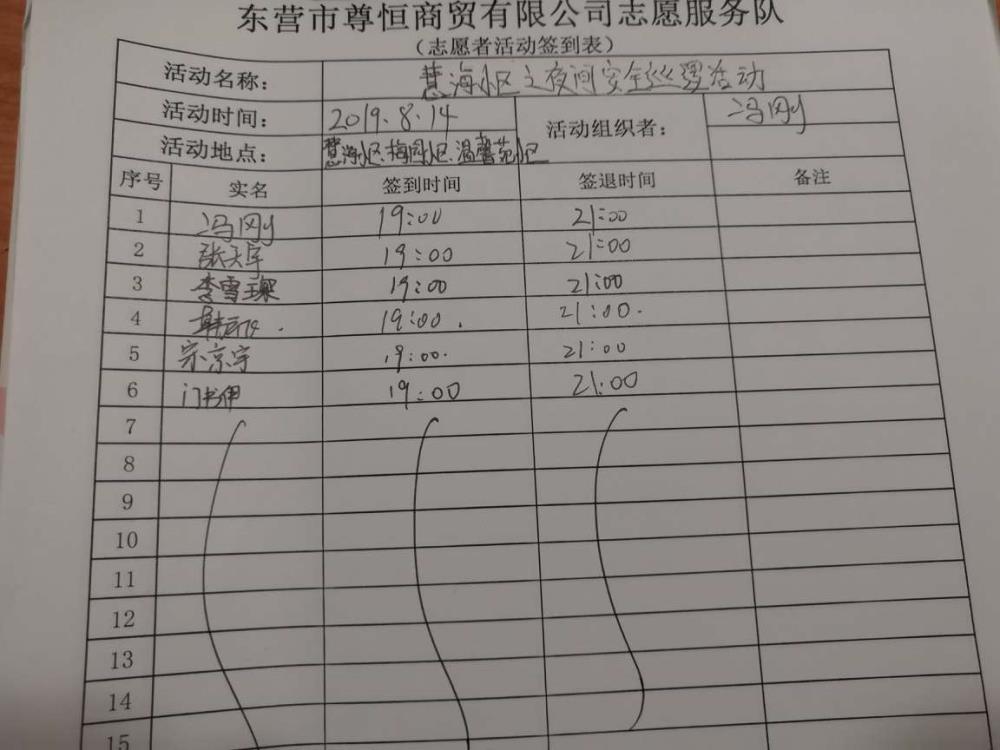 东营市尊恒商贸有限公司志愿服务队
（志愿者活动签到表）
活动名称： 慧海小区之夜间安全巡逻活动
活动时间： 2019.8.14 活动组织者： 冯刚
活动地点： 慧海小区、梅园小区、温馨苑小区
序号 实名 签到时间 签退时间 备注
1 冯刚 19:00 21:00
2 张天宇 19:00 21:00
3 李雪 19:00 21:00
4 19:00. 21:00.
5 宗京宇 19:00. 21:00
6 门书伊 19:00 21:00
7
8
9
10
11
12
13
14
15